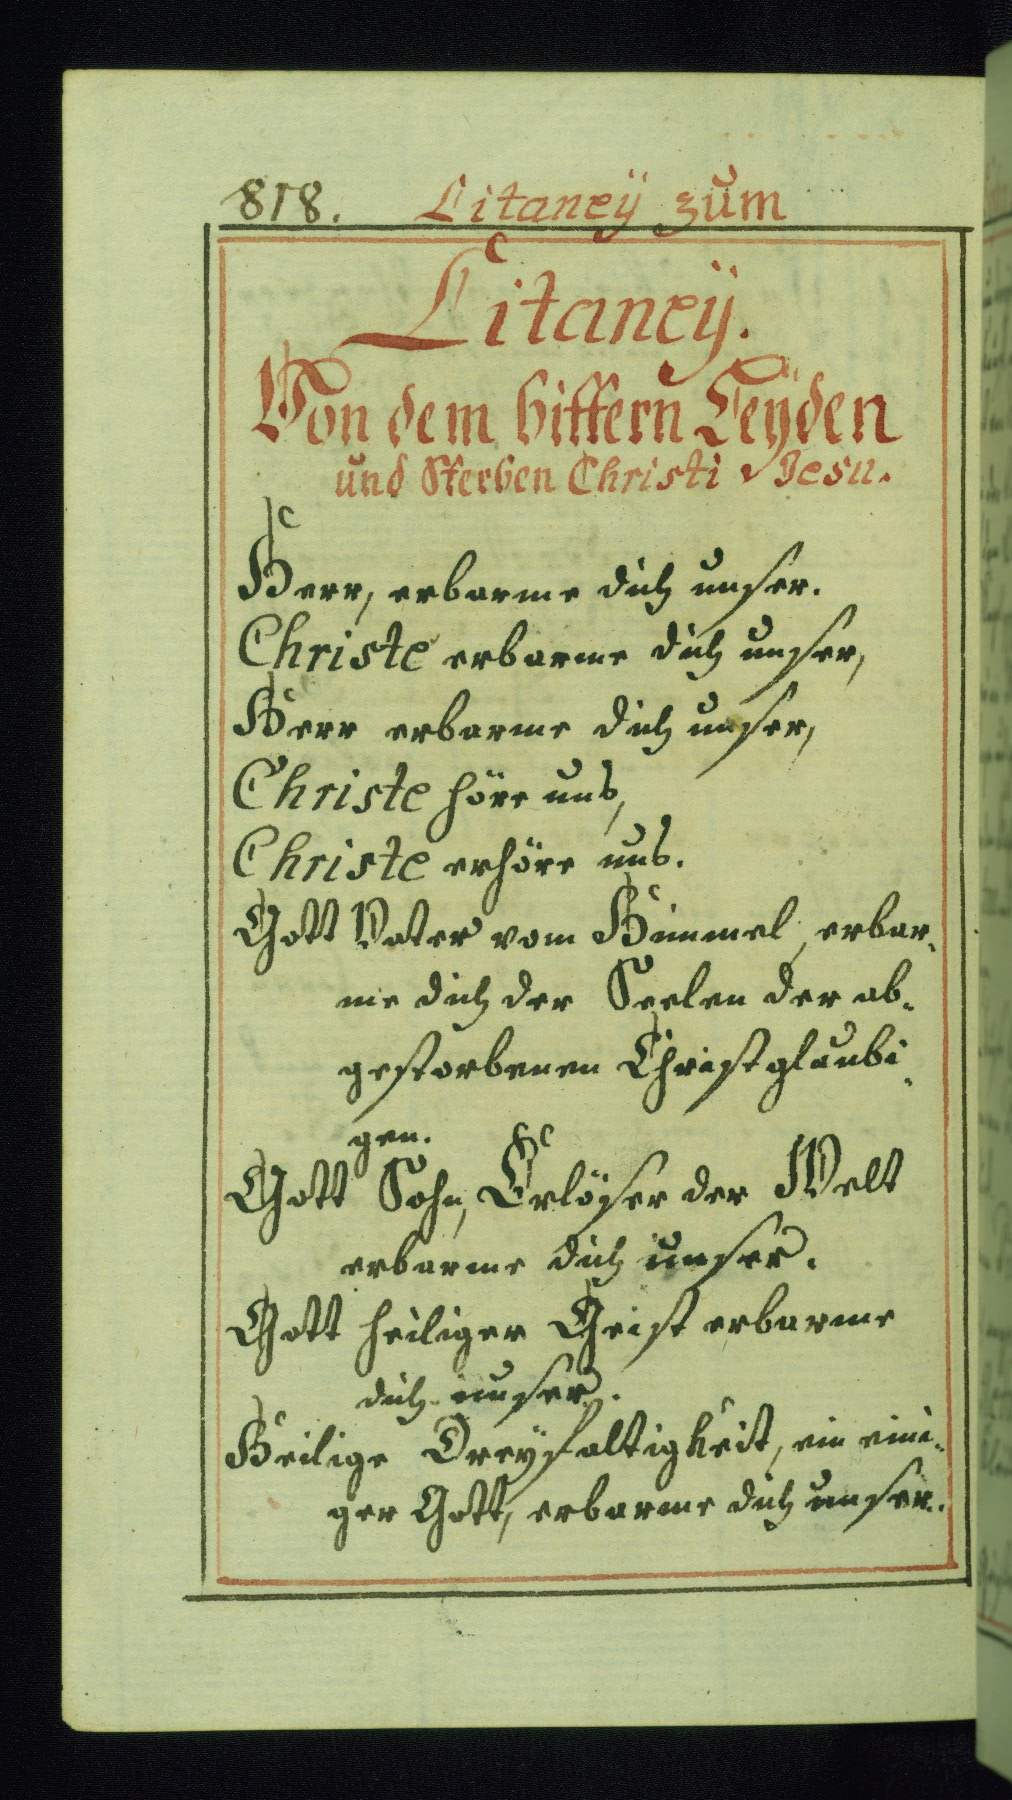 818. Litaneÿ zum
Litaneÿ.
Von dem bittern Leÿden
und Sterben Christi Jesu.
Herr, erbarme dich unser.
Christe erbarme dich unser,
Herr erbarme dich unser,
Christe höre uns,
Christe erhöre uns.
Gott Vater vom Himmel, erbar-
me dich der Seelen der ab-
gestorbenen Christglaubi-
gen.
Gott Sohn, Erlöser der Welt
erbarme dich unser.
Gott heiliger Geist erbarme
dich unser.
Heilige Dreyfaltigkeit, ein eini-
ger Gott, erbarme dich unser.